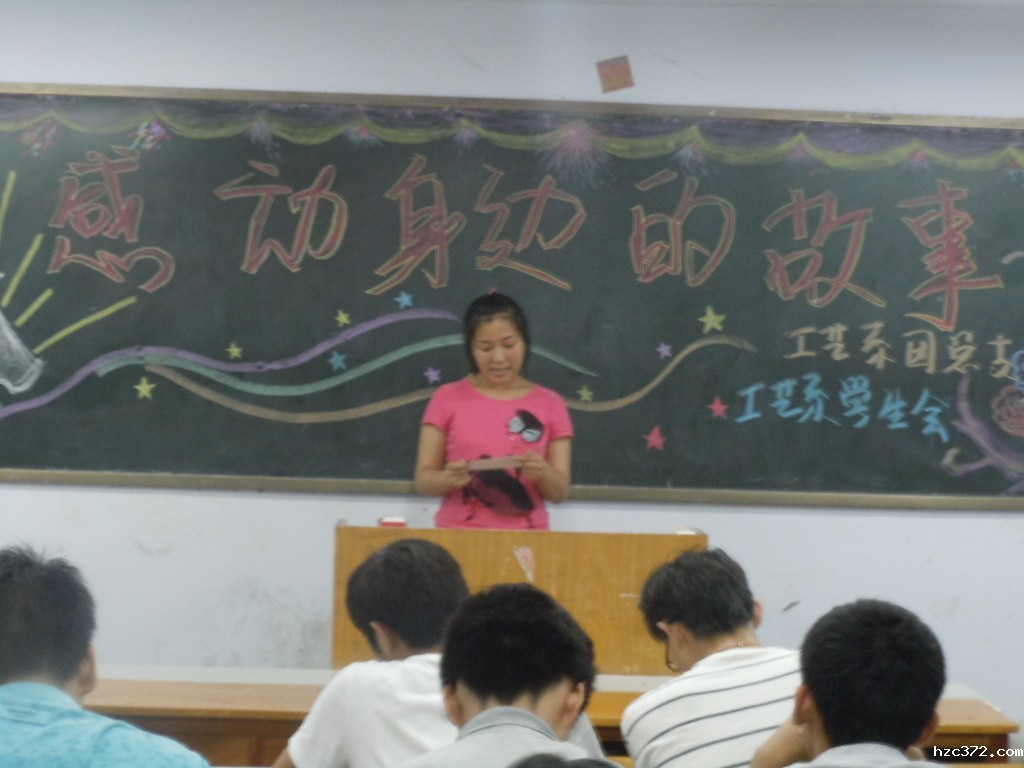 感动身边的故事
工艺系团总支
工艺系学生会
hzc372.com